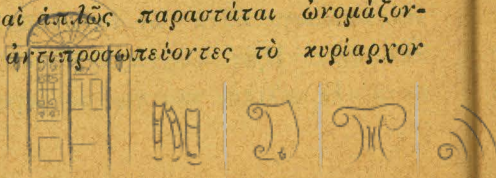 αὶ ἁπλῶς παραστάται ὠνομάζον-
ἀντιπροσωπεύοντες τὸ κυρίαρχον